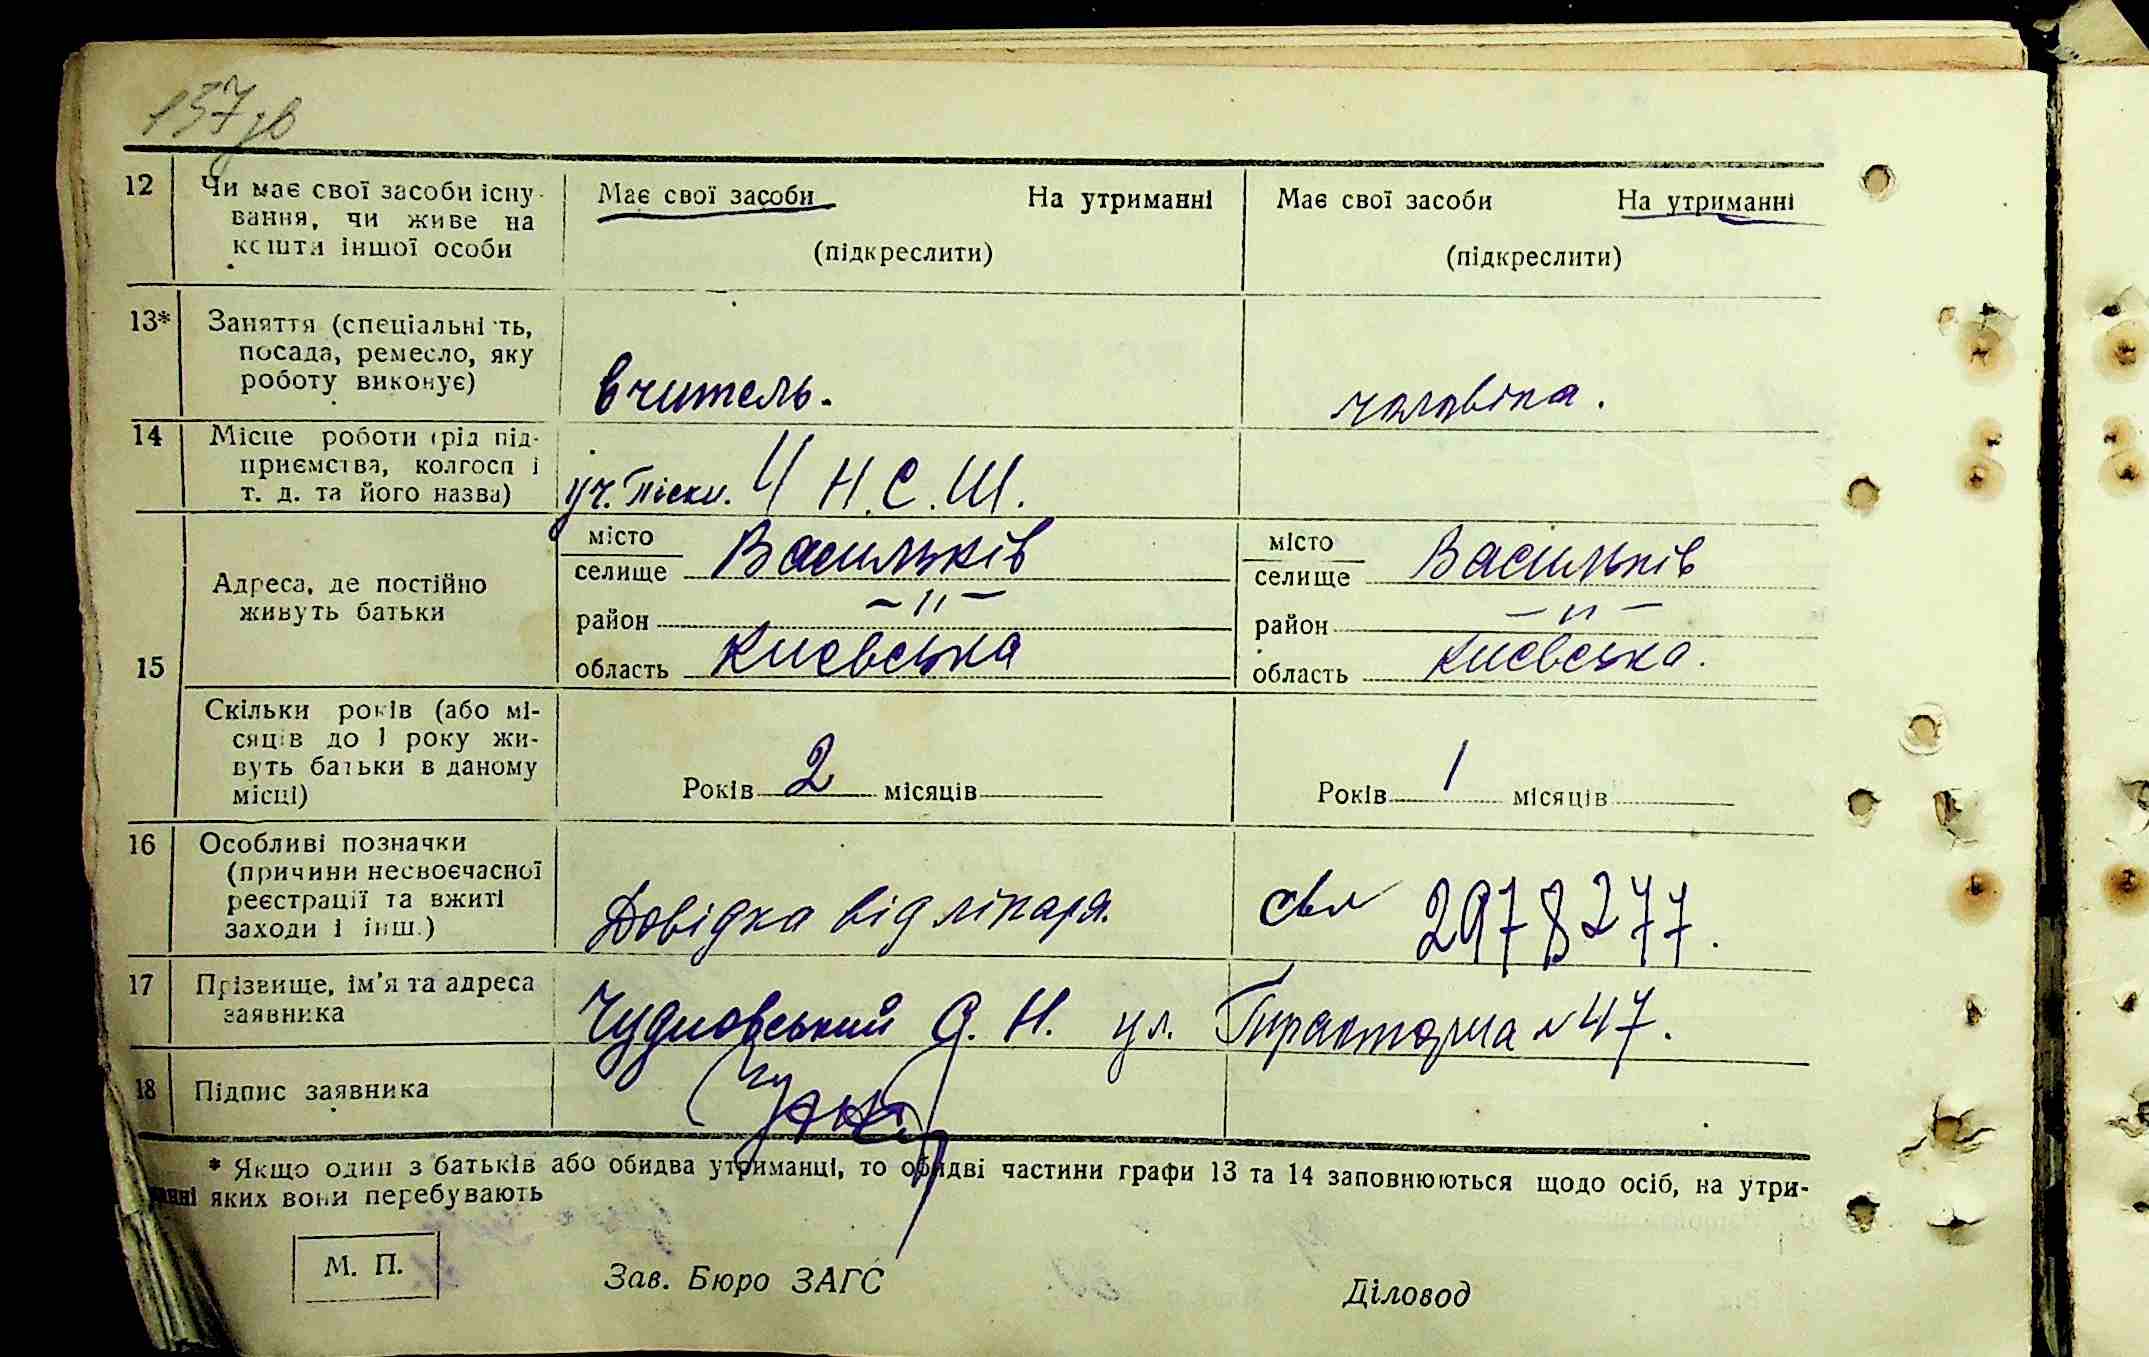 157зв
12 Чи має свої засоби існу- Має свої засоби На утриманні Має свої засоби На утриманні
вання, чи живе на
кошти іншої особи (підкреслити) (підкреслити)
13* Заняття (спеціальність,
посада, ремесло, яку
роботу виконує) вчитель. чоловіка.
14 Місце роботи (рід під-
приємства, колгосп і
т. д. та його назва) Н.С.Ш.
місто місто
селище Васильків селище Васильків
Адреса, де постійно
живуть батьки
район —〃— район —〃—
15
область Києвська область Києвська.
Скільки років (або мі-
сяців до 1 року жи-
вуть батьки в даному
місці) Років 2 місяців Років 1 місяців
16 Особливі позначки
(причини несвоєчасної
реєстрації та вжиті
заходи і інш.) Довідка від лікаря. 2978277.
17 Прізвище, ім'я та адреса
заявника Чудновський Я. Н. ул. Тракторна №47.
18 Підпис заявника
* Якщо один з батьків або обидва утриманці, то обидві частини графи 13 та 14 заповнюються щодо осіб, на утри-
манні яких вони перебувають
М. П. Зав. Бюро ЗАГС Діловод